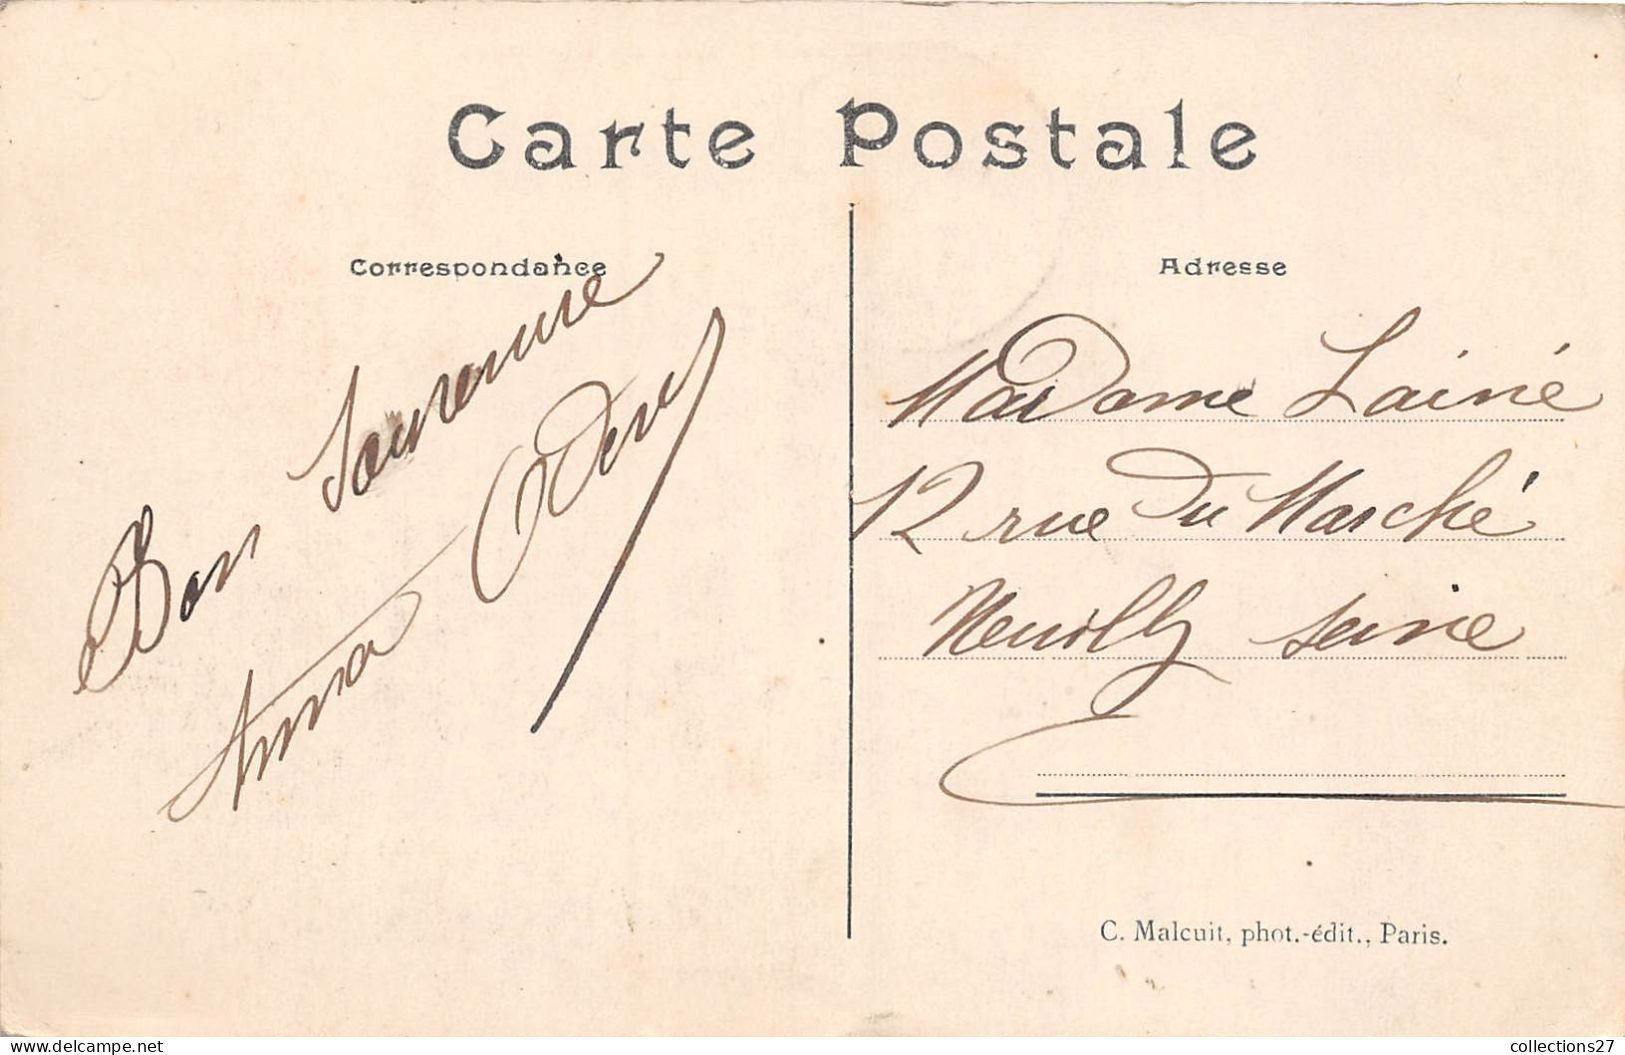 Carte Postale
Correspondance
Bon Souvenire
Anna
Adresse
Madame Lainé
12 rue Du Marché
Neuilly Seine
C. Malcuit, phot.-édit., Paris.
www.delcampe.net
collections27